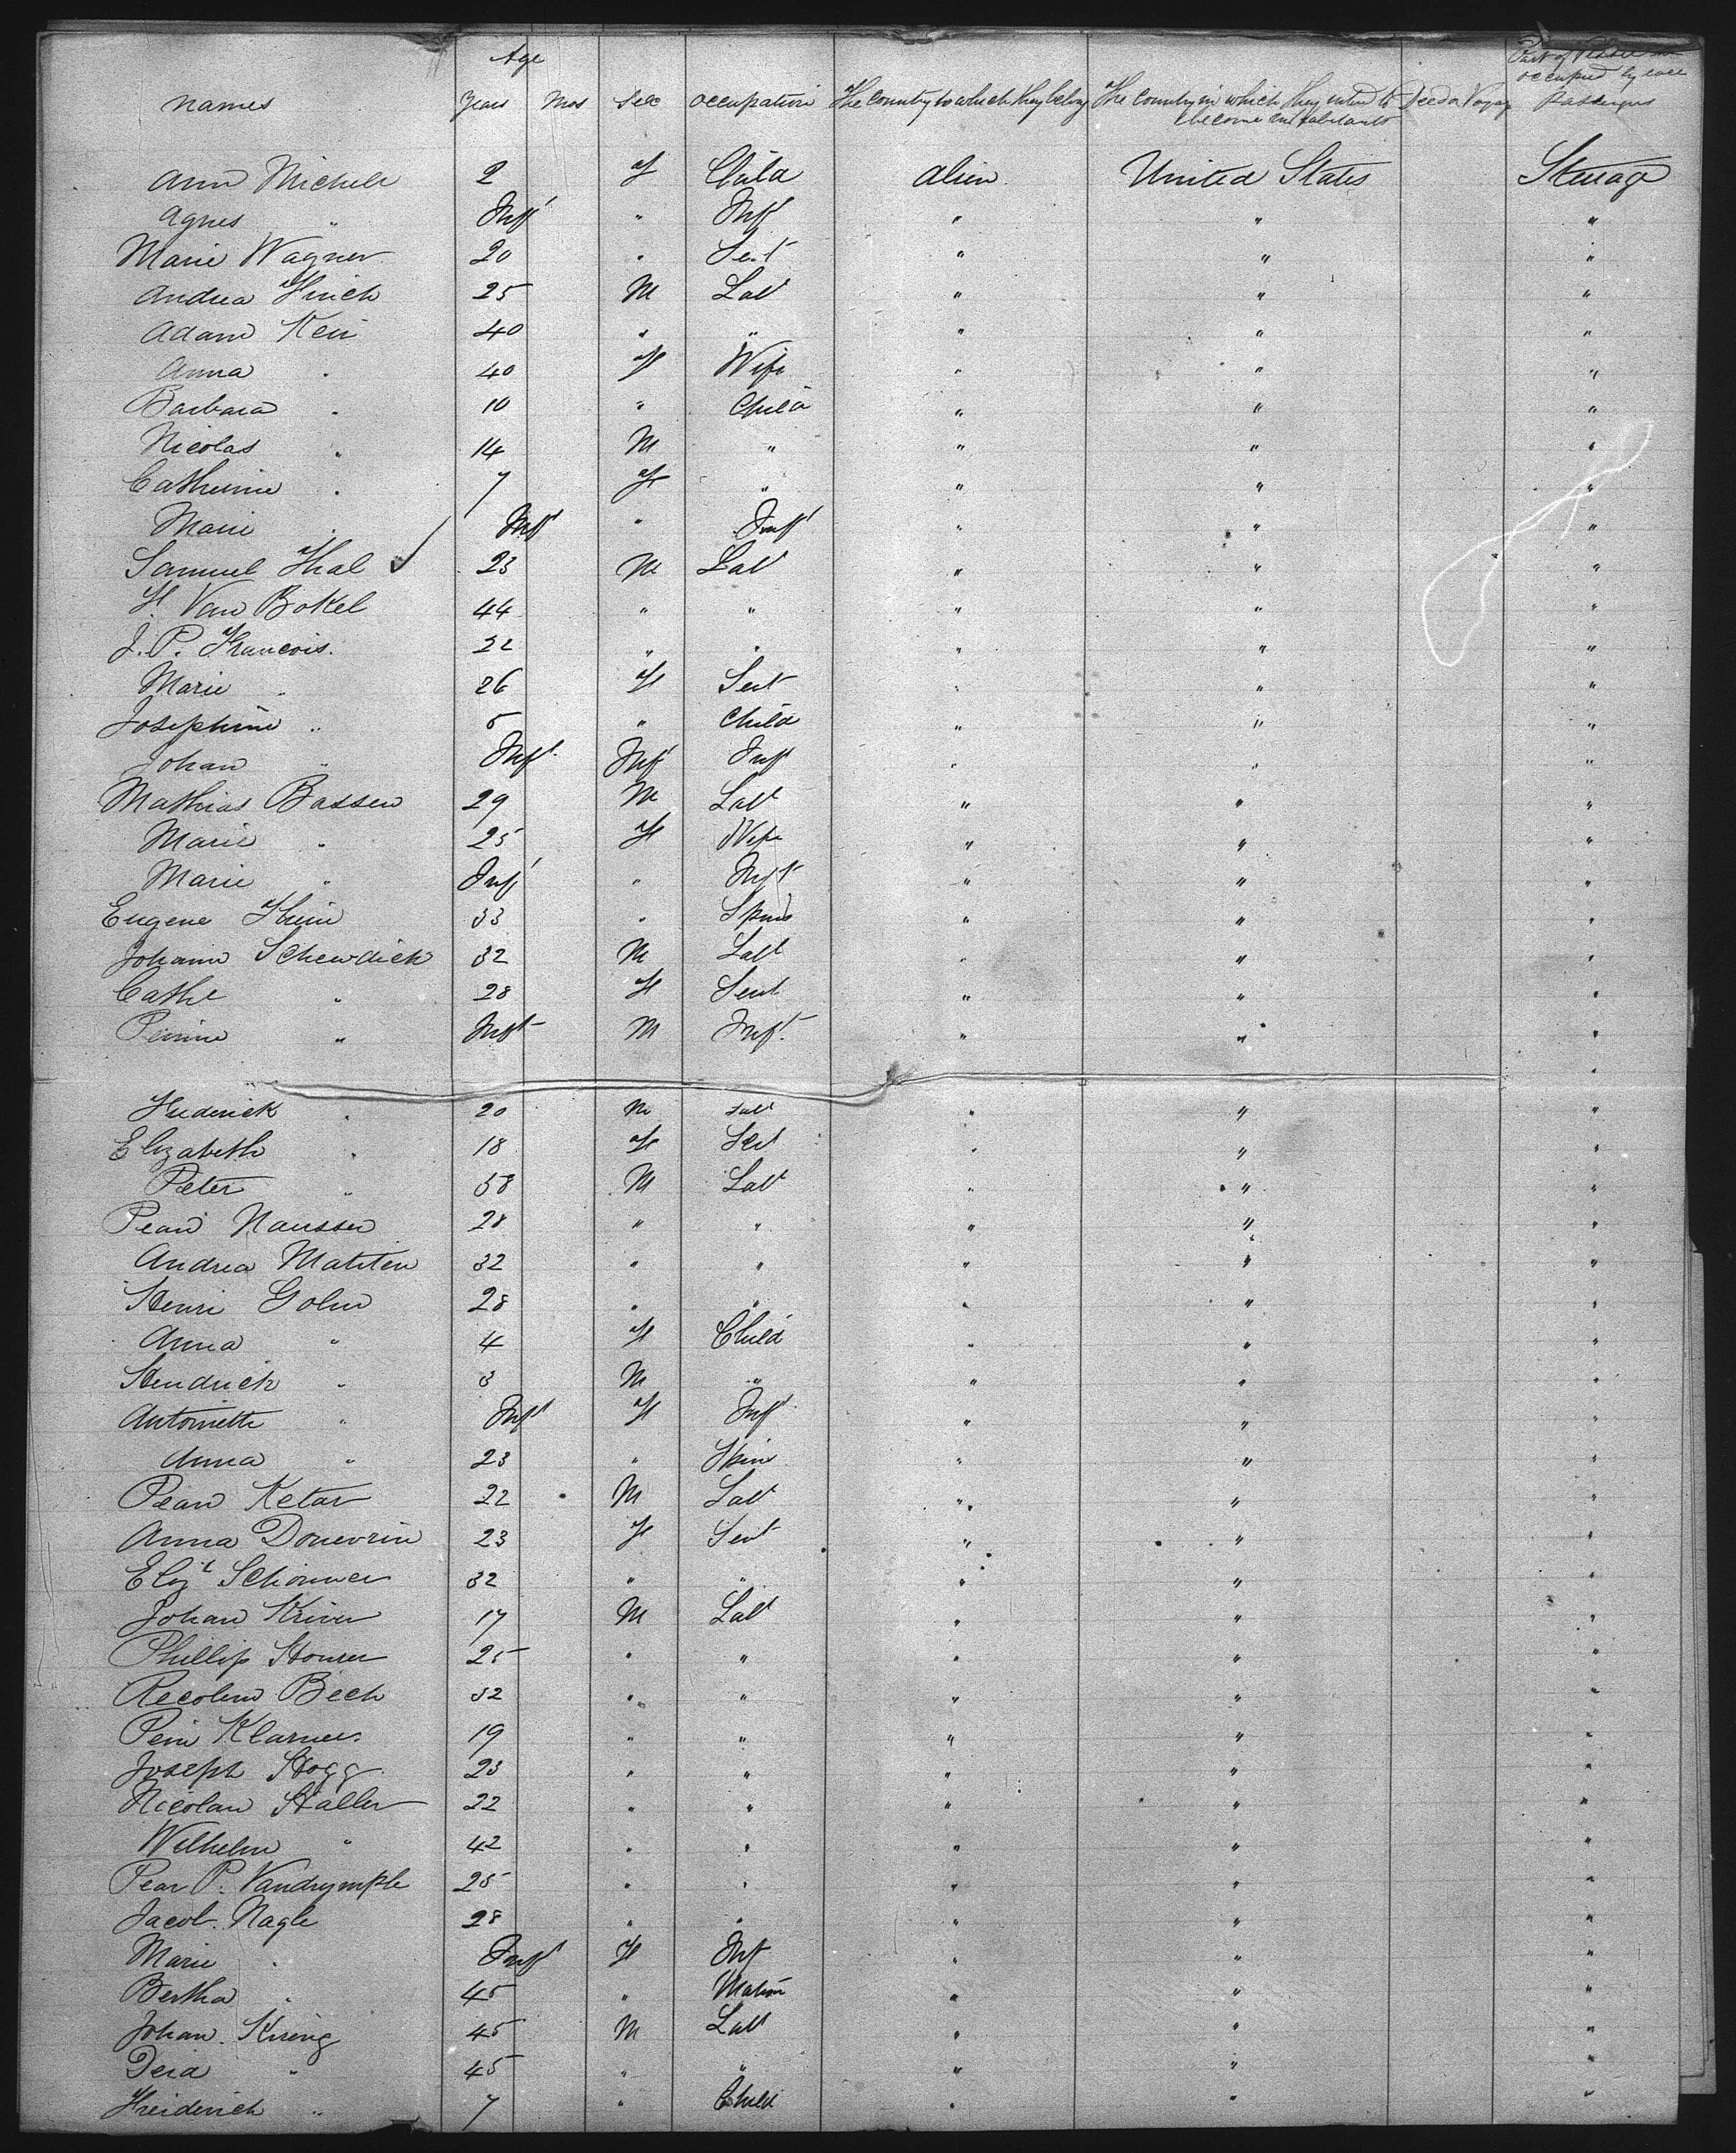 Age
names Years Mos Sex occupation The country to which they belong The country in which they intend to become inhabitants Died on Voyage Part of Vessel occupied by each Passengers
Ann Michele 2 F Child alien United States Steerage
Agnes " Inft " Inft " " "
Marie Wagner 20 " Sert " " "
Andrea Finck 25 M Lab " " "
Adam Keir 40 " " " " "
Anna " 40 F Wife " " "
Barbara " 10 " Child " " "
Nicolas " 14 M " " " "
Catherine " 7 F " " " "
Marie " Inft " Inft " " "
Samuel Thal ✓ 23 M Lab " " "
H. Van Bokel 44 " " " " "
J. P. Francois. 22 " " " " "
Marie " 26 F Sert " " "
Josephine " 5 " Child " " "
Johan " Inft Inft Inft " " "
Mathias Bassen 29 M Lab " " "
Marie " 25 F Wife " " "
Marie " Inft " Inft " " "
Eugene 33 " Spins " " "
Johann Schewdick 32 M Lab " " "
Cathe " 28 F Sert " " "
Inft M Inft " " "
"
Frederick " 20 M Lab " " "
Elizabeth " 18 F Sert " " "
Peter " 58 M Lab " " "
Pean Nausser 28 " " " " "
Andrea Matiten 32 " " " " "
Henri Golm 28 " " " " "
Anna " 4 F Child " " "
Hendrick " 3 M " " " "
Antoinette " Inft F Inft " " "
Anna " 23 " Spin " " "
Pean Ketar 22 M Lab " " "
Anna Donevrin 23 F Sert " " "
Elizt Schonner 32 " " " " "
Johan Kriver 17 M Lab " " "
Phillip Honrer 25 " " " " "
Recolem Bech 32 " " " " "
Klarner. 19 " " " " "
Joseph Hogg 23 " " " " "
Nicolau Haller 22 " " " " "
Wilhelm " 42 " " " " "
Pear P. Vandrymple 25 " " " " "
Jacob. Nagle 28 " " " " "
Marie " Inft F Inft " " "
Bertha " 45 " Matron " " "
Johan. Kring 45 M Lab " " "
Deia " 45 " " " " "
Freiderich " 7 " Child " " "